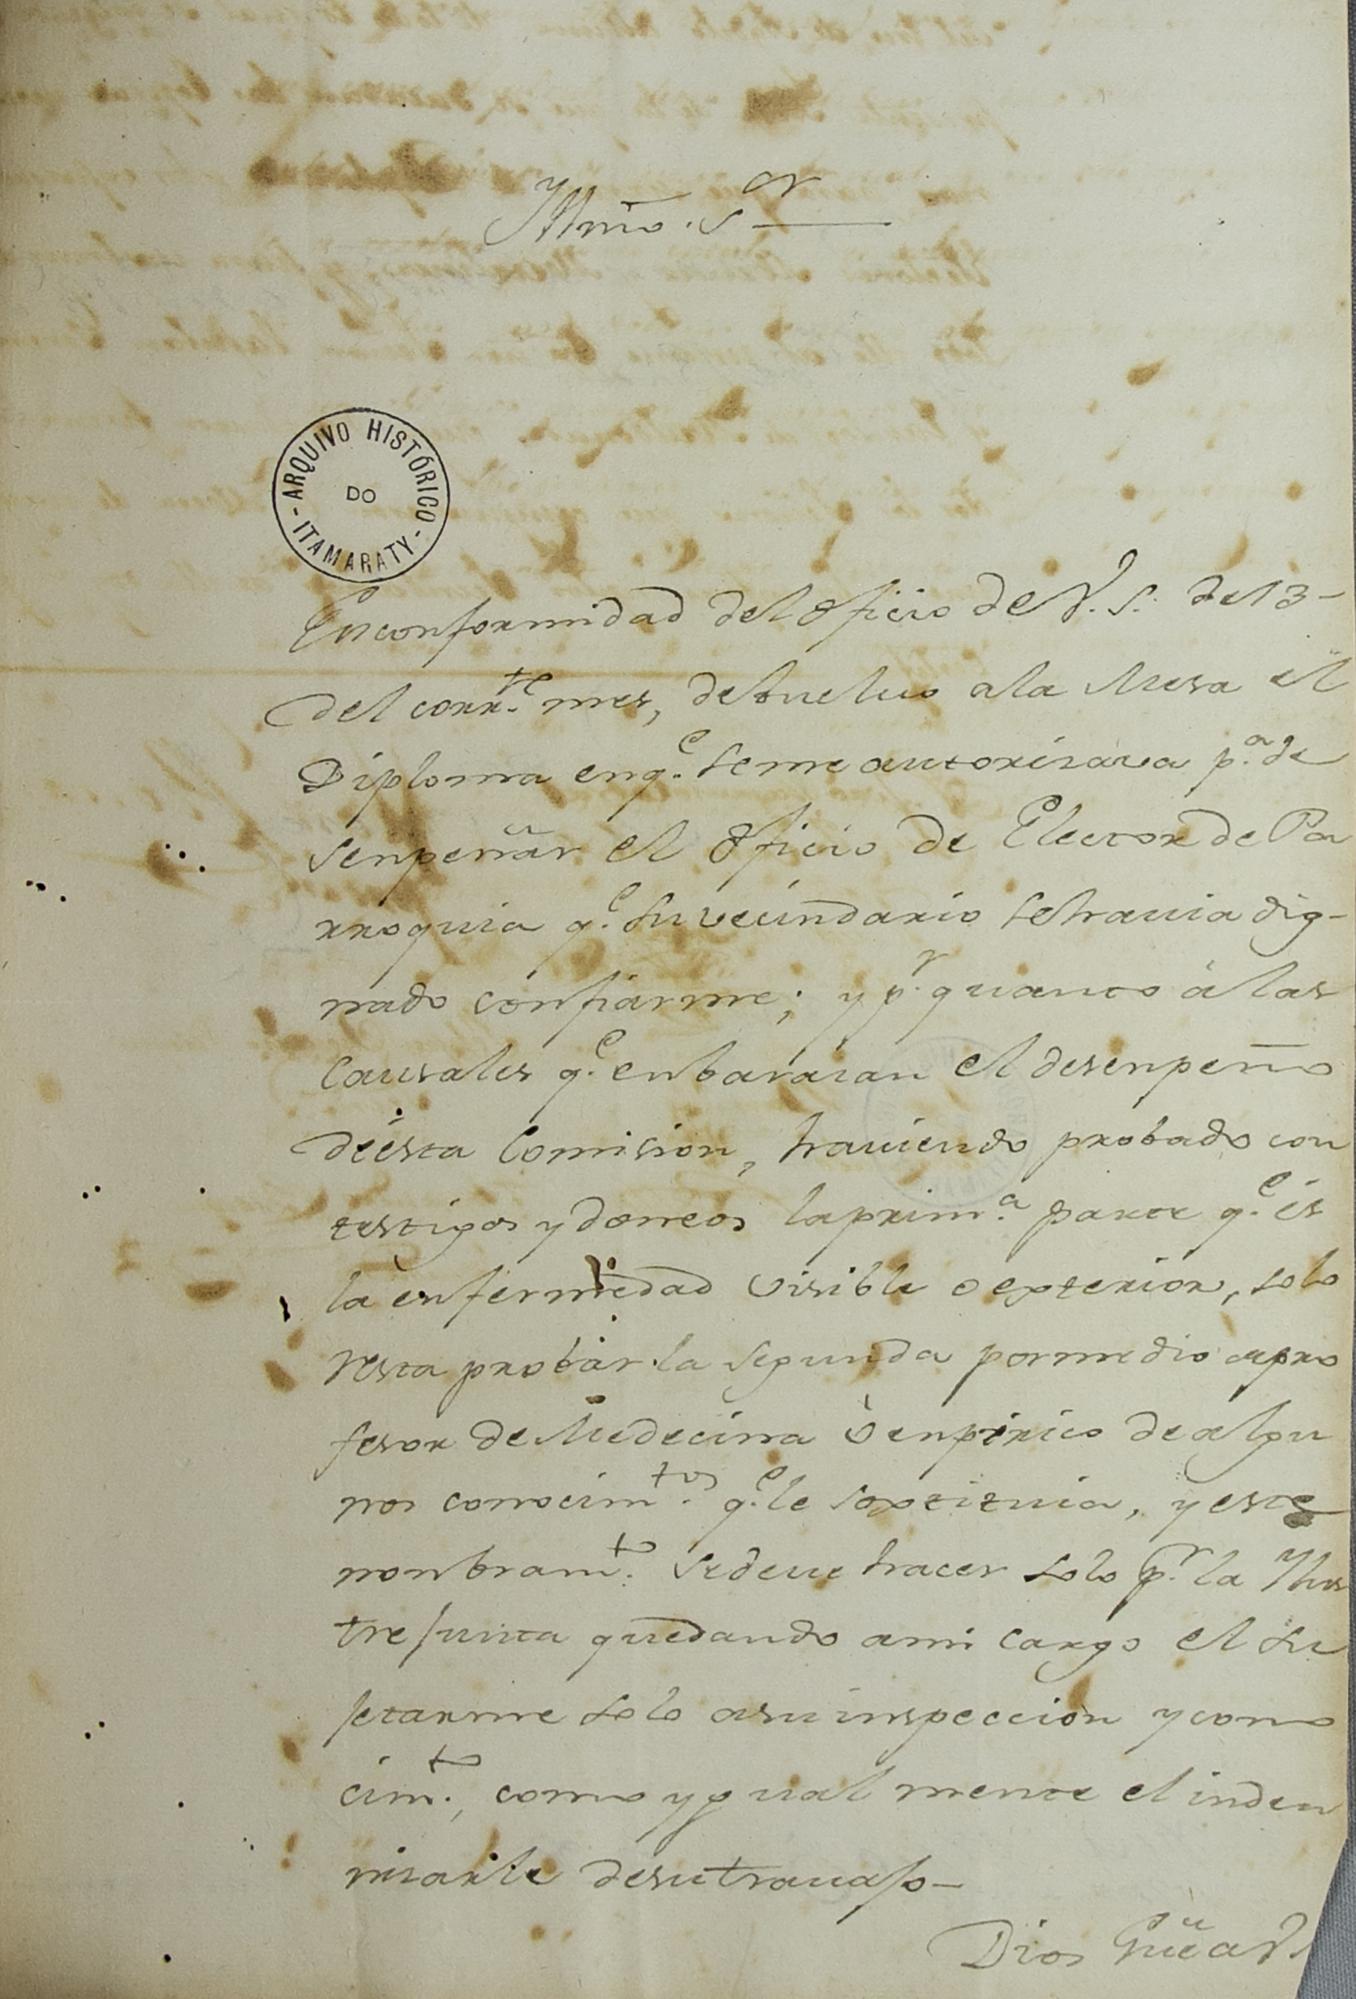 Yllmo. Sor
ARQUIVO HISTÓRICO
DO
ITAMARATY
Enconformidad del Oficio de V. S. de 13-
del corrte. mes, debuelvo ala Mesa el
Diploma enqe. seme autorisava pa. de
senpeñar el Oficio de Elector de Pa
rroquia qe. su vecindario sehavia dig-
nado confiarme; y pr. quanto à las
Causales qe. enbarasan el desenpeño
deésta Comision, haviendo probado con
testigos ydoneos laprima. parte qe. és
la enfermedad visible o exterior, solo
resta probar la segunda pormedio depro
fesor de Medecina ò enpirico de algu
nos conocimtos. qe. le sostituia, y este
nonbramto. sedeve hacer solo pr. la Ylus
tre Junta quedando ami cargo el su
jetarme solo asu inspeccion y cono
cimto., como ygual mente el indem
nisarle desutravajo-
Dios Gūe a V.